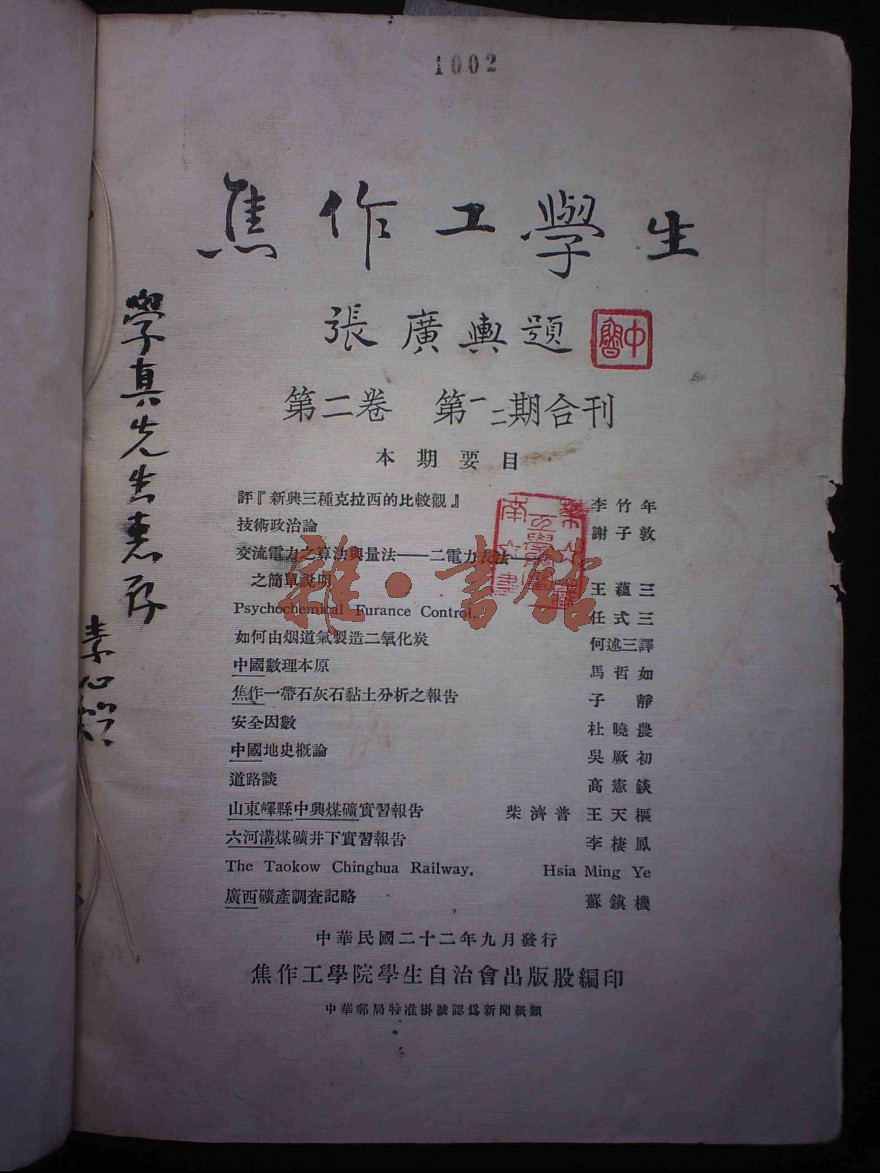 1002
焦作工學生
張廣輿題
第二卷 第一二期合刊
本期要目
評『新興三種克拉西的比較觀』 李竹年
技術政治論 謝子敦
交流電力之算法與量法——二電力表法
之簡單説明 王蘊三
Psychochemical Furance Control. 任式三
如何由烟道氣製造二氧化炭 何述三譯
中國數理本原 馬哲如
焦作一帶石灰石黏土分析之報告 子靜
安全因數 杜曉農
中國地史概論 吳厥初
道路談 高憲錟
山東嶧縣中興煤礦實習報告 柴濟普 王天樞
六河溝煤礦井下實習報告 李棲鳳
The Taokow Chinghua Railway. Hsia Ming Ye
廣西礦產調查記略 蘇鎮機
中華民國二十二年九月發行
焦作工學院學生自治會出版股編印
中華郵局特准掛號認爲新聞紙類
學真先生惠存
李心
雜·書館